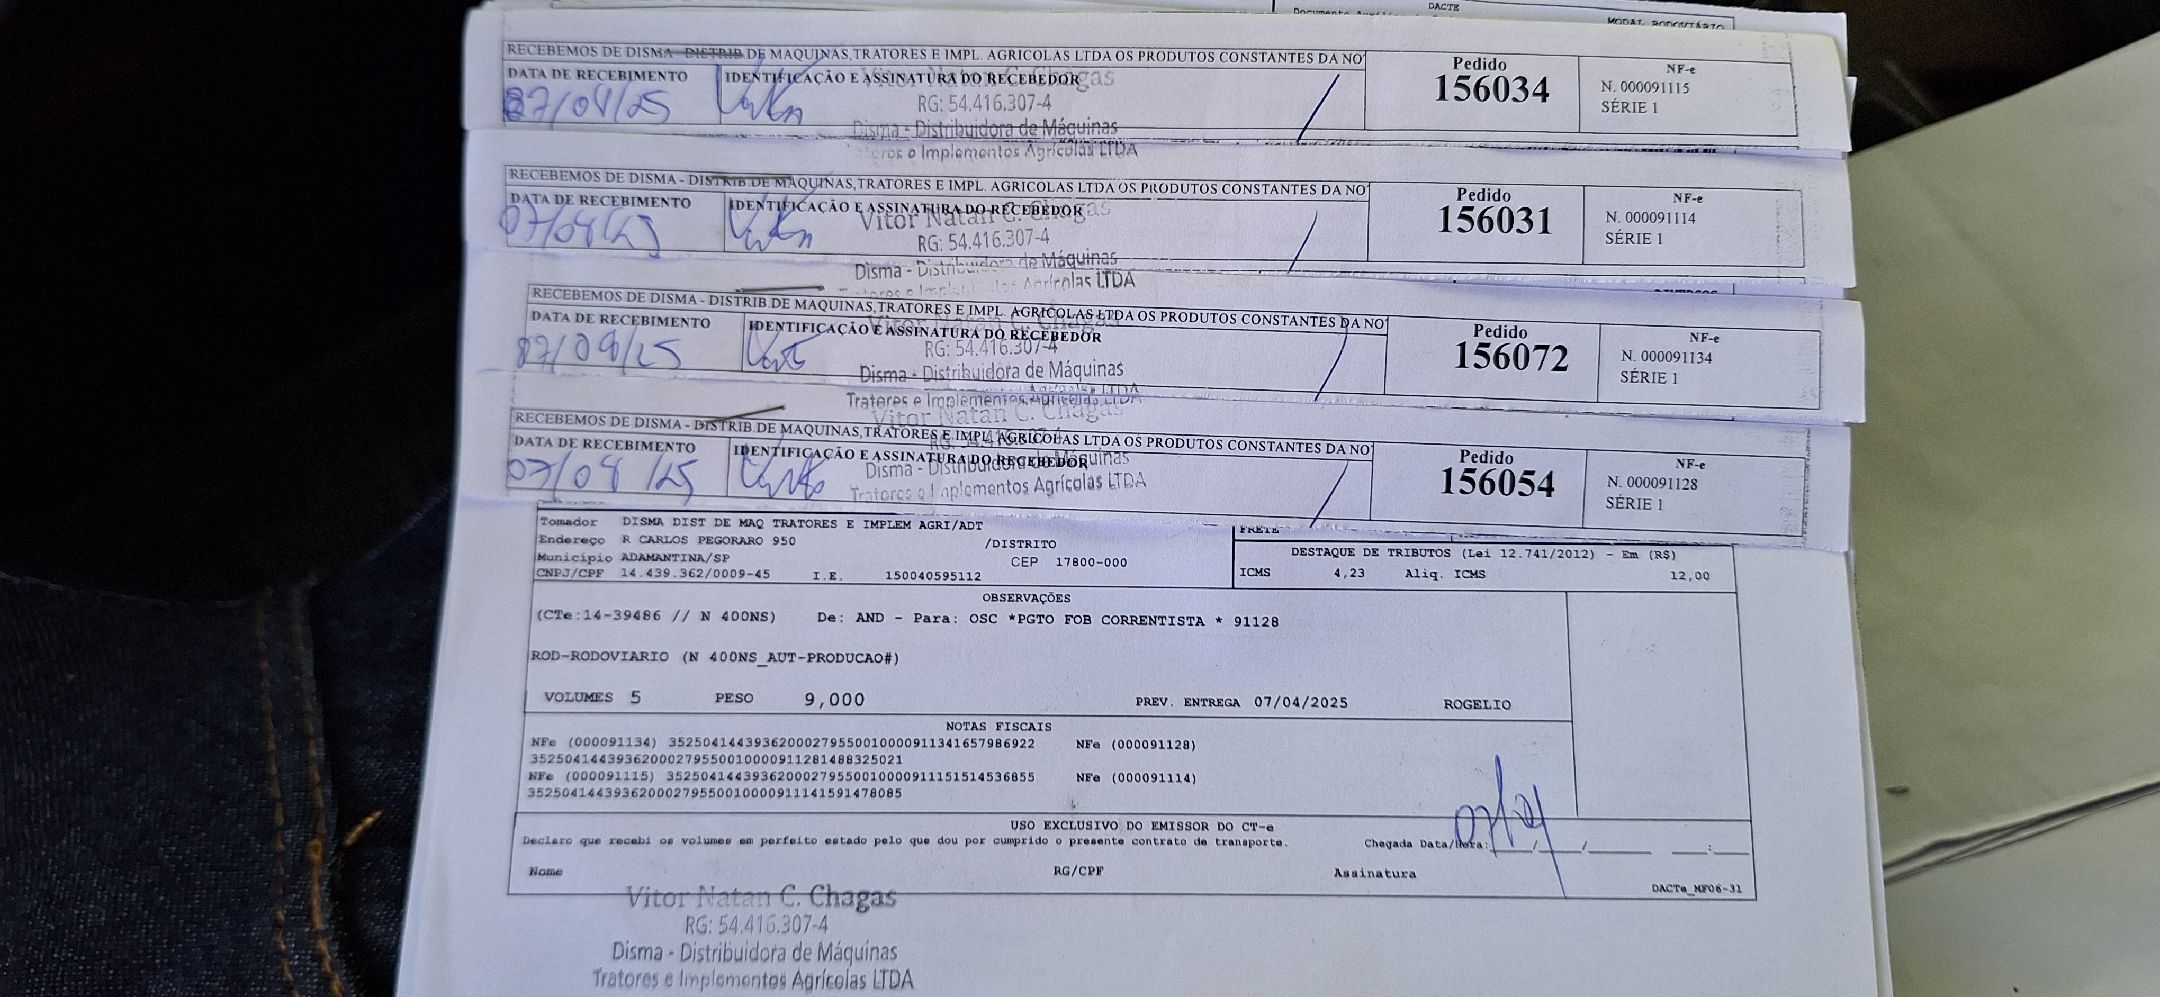 DACTE
MODAL RODOVIÁRIO
RECEBEMOS DE DISMA - DISTRIB DE MAQUINAS,TRATORES E IMPL. AGRICOLAS LTDA OS PRODUTOS CONSTANTES DA NO
DATA DE RECEBIMENTO IDENTIFICAÇÃO E ASSINATURA DO RECEBEDOR
07/04/25
Chagas
RG: 54.416.307-4
Disma - Distribuidora de Máquinas
Tratores e Implementos Agrícolas LTDA
Pedido
156034
NF-e
N. 000091115
SÉRIE 1
RECEBEMOS DE DISMA - DISTRIB.DE MAQUINAS,TRATORES E IMPL. AGRICOLAS LTDA OS PRODUTOS CONSTANTES DA NO
DATA DE RECEBIMENTO IDENTIFICAÇÃO E ASSINATURA DO RECEBEDOR
07/04/25
Vitor Natan C. Chagas
RG: 54.416.307-4
Disma - Distribuidora de Máquinas
Tratores e Implementos Agrícolas LTDA
Pedido
156031
NF-e
N. 000091114
SÉRIE 1
RECEBEMOS DE DISMA - DISTRIB DE MAQUINAS,TRATORES E IMPL. AGRICOLAS LTDA OS PRODUTOS CONSTANTES DA NO
DATA DE RECEBIMENTO IDENTIFICAÇÃO E ASSINATURA DO RECEBEDOR
07/04/25
RG: 54.416.307-4
Disma - Distribuidora de Máquinas
Tratores e Implementos Agrícolas LTDA
Pedido
156072
NF-e
N. 000091134
SÉRIE 1
Vitor Natan C. Chagas
RECEBEMOS DE DISMA - DISTRIB.DE MAQUINAS,TRATORES E IMPL. AGRICOLAS LTDA OS PRODUTOS CONSTANTES DA NO
DATA DE RECEBIMENTO IDENTIFICAÇÃO E ASSINATURA DO RECEBEDOR
07/04/25
Disma - Distribuidora de Máquinas
Tratores e Implementos Agrícolas LTDA
Pedido
156054
NF-e
N. 000091128
SÉRIE 1
Tomador DISMA DIST DE MAQ TRATORES E IMPLEM AGRI/ADT
Endereço R CARLOS PEGORARO 950 /DISTRITO
Município ADAMANTINA/SP CEP 17800-000
CNPJ/CPF 14.439.362/0009-45 I.E. 150040595112
FRETE
DESTAQUE DE TRIBUTOS (Lei 12.741/2012) - Em (R$)
ICMS 4,23 Aliq. ICMS 12,00
OBSERVAÇÕES
(CTe:14-39486 // N 400NS) De: AND - Para: OSC *PGTO FOB CORRENTISTA * 91128
ROD-RODOVIARIO (N 400NS_AUT-PRODUCAO#)
VOLUMES 5 PESO 9,000 PREV. ENTREGA 07/04/2025 ROGELIO
NOTAS FISCAIS
NFe (000091134) 35250414439362000279550010000911341657986922 NFe (000091128)
35250414439362000279550010000911281488325021
NFe (000091115) 35250414439362000279550010000911151514536855 NFe (000091114)
35250414439362000279550010000911141591478085
USO EXCLUSIVO DO EMISSOR DO CT-e
Declaro que recebi os volumes em perfeito estado pelo que dou por cumprido o presente contrato de transporte. Chegada Data/Hora:___/___/_____ ___:___
07/04
Nome RG/CPF Assinatura
DACTe_MF06-31
Vitor Natan C. Chagas
RG: 54.416.307-4
Disma - Distribuidora de Máquinas
Tratores e Implementos Agrícolas LTDA